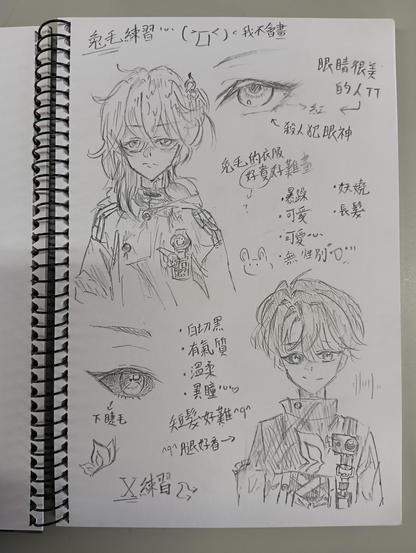 兔毛練習… ( ˃̣̣̥⌓˂̣̣̥ ) < 我不會畫
眼睛很美
的人TT
紅
殺人犯眼神
兔毛的衣服
好复好難畫
?
・暴躁
・可愛
・可愛…
・無性別
・妖嬈
・長髮
・白切黑
・有氣質
・溫柔
・異瞳…
下睫毛
短髮好難^q^
^q^腿好看→
X練習